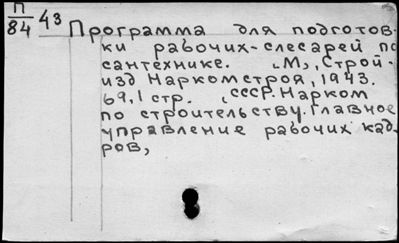 П
84 43
Программа для подготов-
ки рабочих-слесарей по
сантехнике. "М", Строй-
изд Наркомстроя, 1943.
69,1 стр. (СССР. Нарком
по строительству. Главное
управление рабочих кад-
ров,